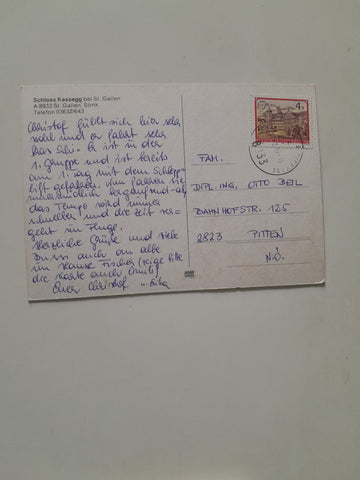 Schloss Kassegg bei St. Gallen
A 8933 St. Gallen, Stmk
Telefon 03632/643
Christof fühlt sich hier sehr
wohl und er fährt sehr
brav Ski. Er ist in der
1. Gruppe und ist bereits
am 1. Tag mit dem Schlepp-
lift gefahren. Nun fahren sie
bergauf und -ab
das Tempo wird immer
schneller und die Zeit ver-
geht im Fluge.
Herzliche Grüße und viele
Bussi auch an alle
im Hause Fischer (zeige bitte
die Karte auch
Euer Christof u. Erika
4 S
FAM.
DIPL. ING. OTTO BEIL
BAHNHOFSTR. 125
2823 PITTEN
N.Ö.